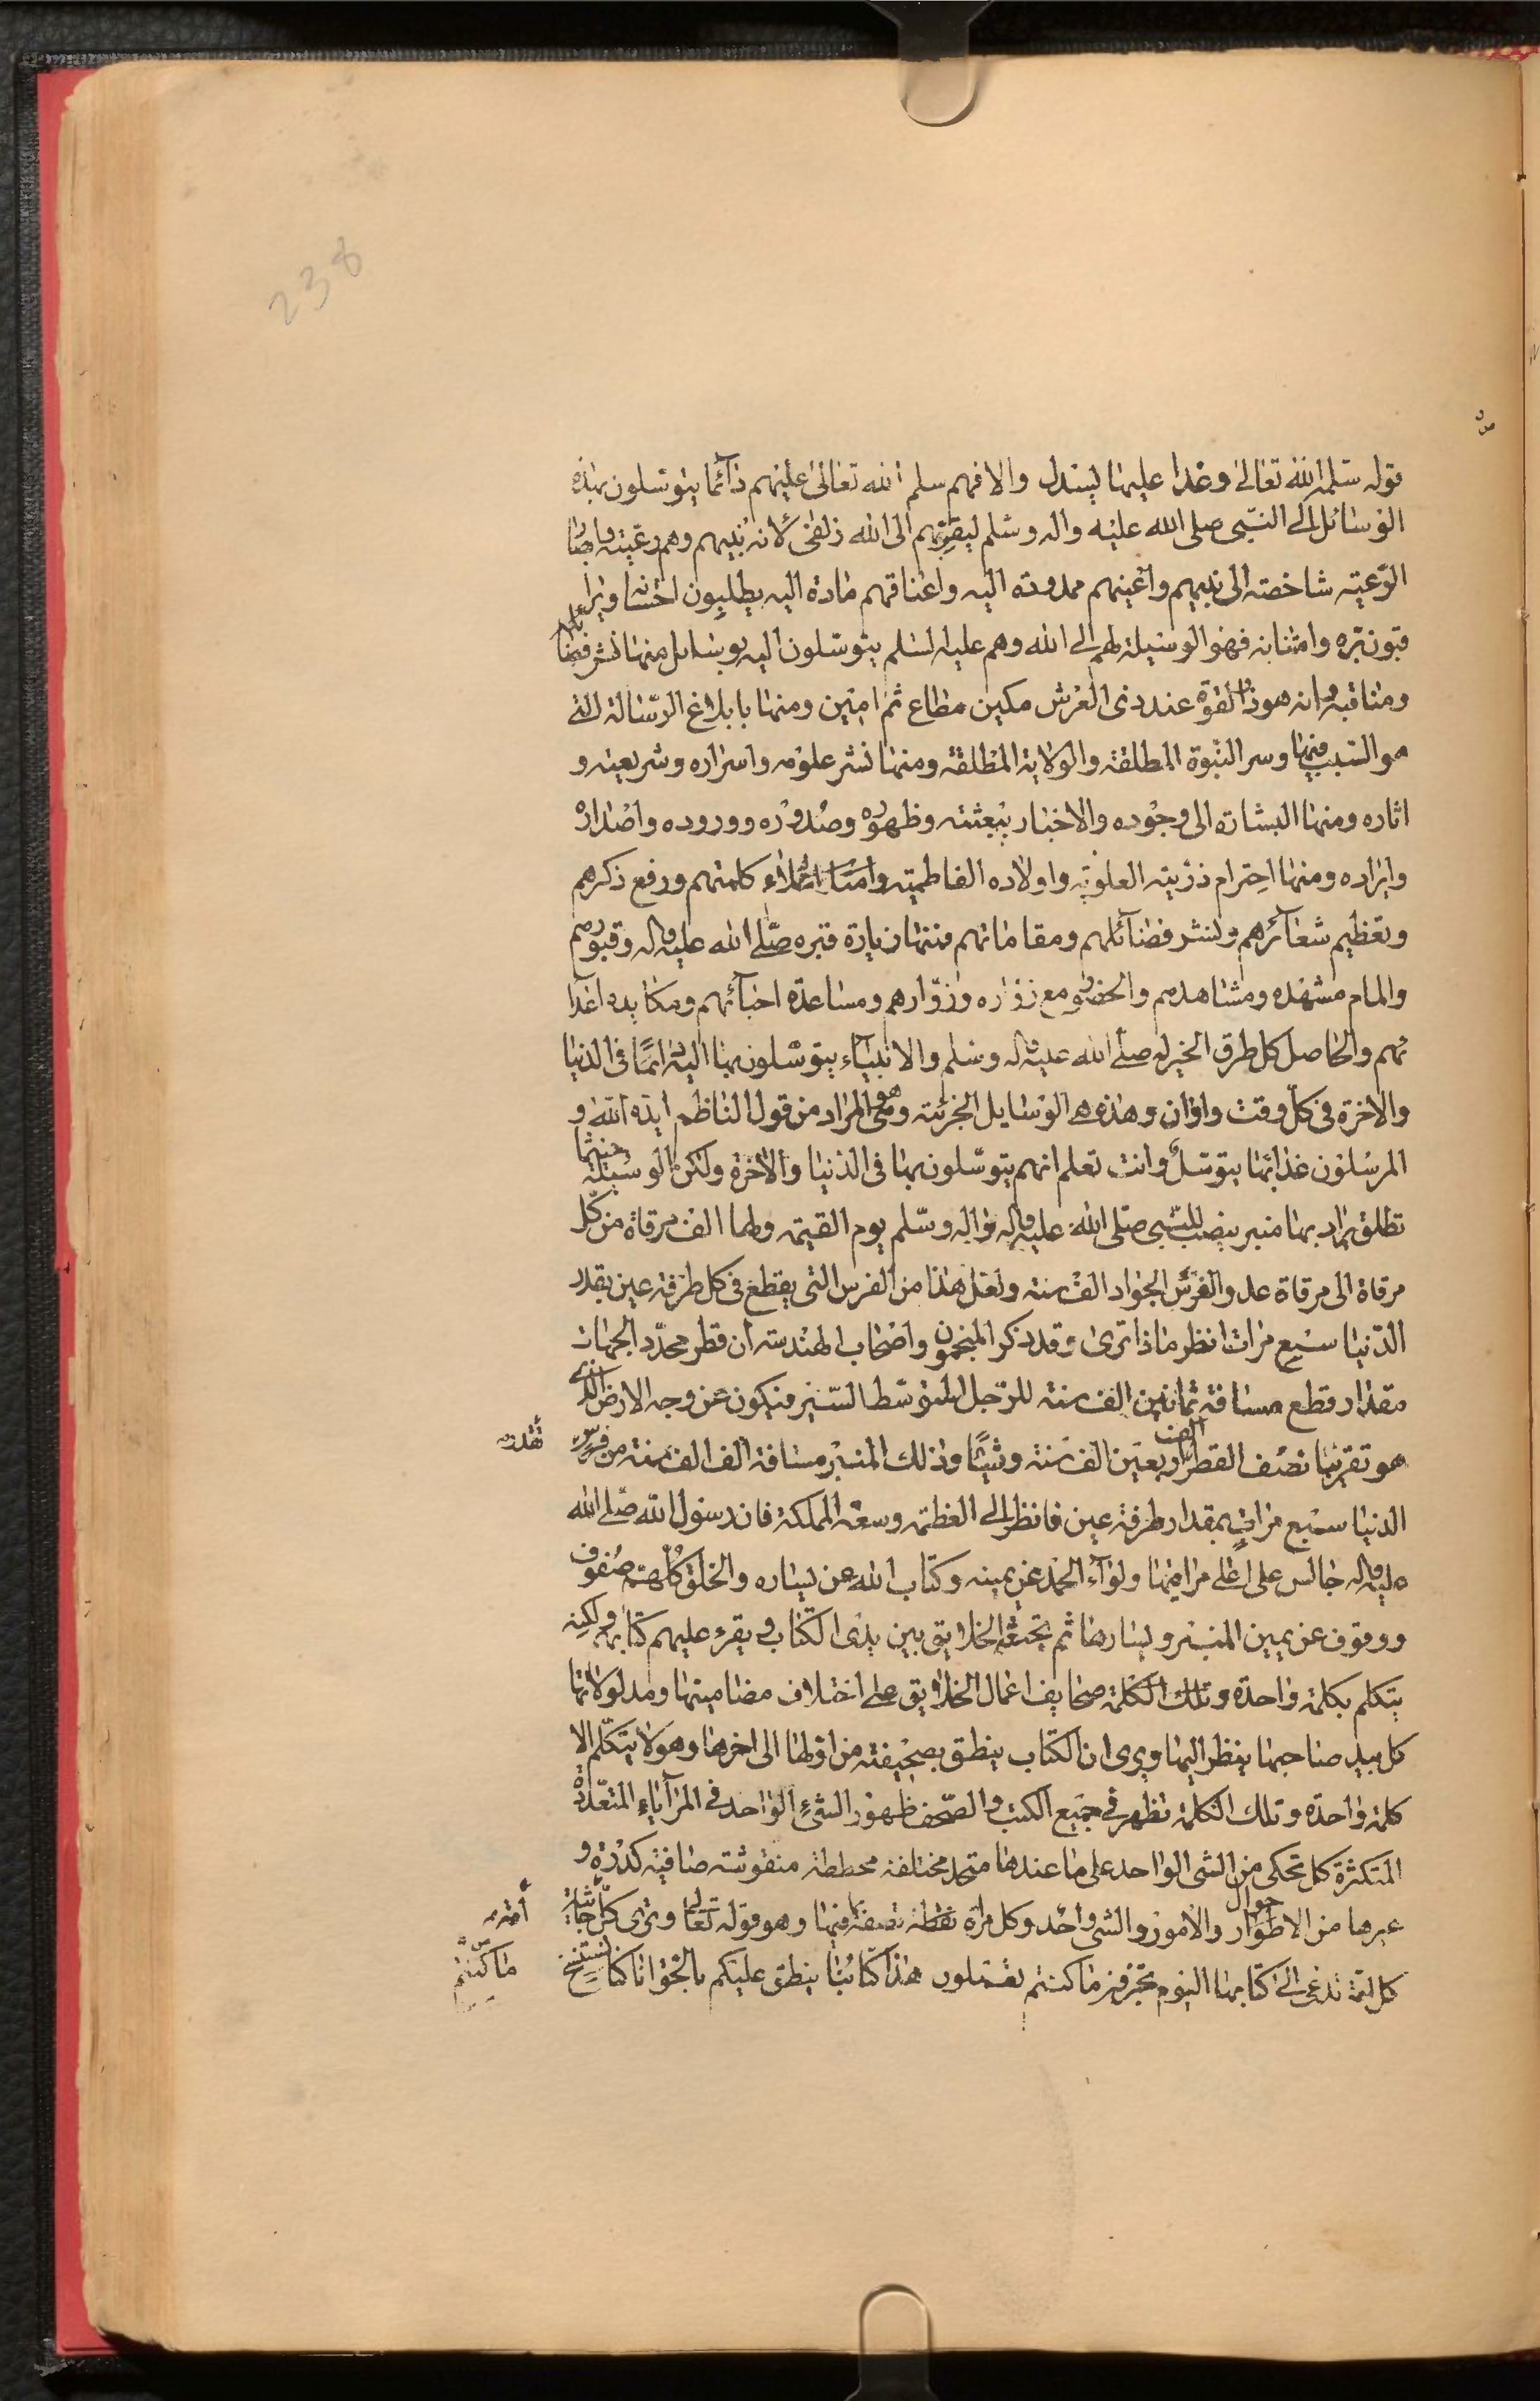 238
قوله سلمه الله تعالى وغدا عليها يسندل والا فهم سلم الله تعالى عليهم دآئما يتوسلون بهذه
الوسائل الى النبي صلى الله عليه واله وسلم ليقربهم الى الله زلفى لانه نبيهم وهم رعيته وابصار
الرعية شاخصة الى نبيهم واعينهم ممدودة اليه واعناقهم مادة اليه يطلبون احسانه ويرا
قبون بره وامتنانه فهو الوسيلة لهم الى الله وهم عليه السلم يتوسلون اليه بوسايل منها نشر فضائله
ومناقبه وانه هو ذو القوة عند ذى العرش مكين مطاع ثم امين ومنها بابلاغ الرسالة التى
هو السبب فيها وسر النبوة المطلقة والولاية المطلقة ومنها نشر علومه واسراره وشريعته و
اثاره ومنها البشارة الى وجوده والاخبار ببعثته وظهوره وصدوره ووروده واصداره
وايراده ومنها احترام ذريته العلوية واولاده الفاطمية واعلاء كلمتهم ورفع ذكرهم
وتعظيم شعآئرهم ونشر فضآئلهم ومقاماتهم ومنها زيارة قبره صلى الله عليه واله وقبورهم
والمام مشهده ومشاهدهم والحضور مع زواره وزوارهم ومساعدة احبآئهم ومكابدة اعدآ
ئهم والحاصل كل طرق الخير له صلى الله عليه واله وسلم والانبيآء يتوسلون بها اليه دائما فى الدنيا
والاخرة فى كل وقت واوان وهذه هى الوسايل الجزئية وهى المراد من قول الناظم ايده الله و
المرسلون غدا بها يتوسل وانت تعلم انهم يتوسلون بها فى الدنيا والاخرة ولكن الوسيلة حينما
تطلق يراد بها منبر ينصب للنبى صلى الله عليه واله واله وسلم يوم القيمة ولها الف مرقاة من كل
مرقاة الى مرقاة عدو الفرس الجواد الف سنة ولعل هذا من الفرس التى يقطع فى كل طرفة عين بقدر
الدنيا سبع مرات انظر ماذا ترى وقد ذكر المنجمون واصحاب الهندسة ان قطر محدد الجهات
مقدار قطع مسافة ثمانين الف سنة للرجل المتوسط السير فيكون عن وجه الارض الذى
هو تقريبا نصف القطر اربعين الف سنة وشيئا وذلك المنبر مسافة الف الف سنة من فرس تقدر
الدنيا سبع مرات بمقدار طرفة عين فانظر الى العظمة وسعة المملكة فان رسول الله صلى الله
عليه واله جالس على اعلى مراقيها ولوآء الحمد عن يمينه وكتاب الله عن يساره والخلق كلهم صفوف
ووقوف عن يمين المنبر ويسارها ثم يجتمع الخلايق بين يدى الكتاب ويقرء عليهم كتابهم ولكنه
يتكلم بكلمة واحدة وتلك الكلمة صحايف اعمال الخلايق على اختلاف مضامينها ومدلولاتها
كل بيد صاحبها ينظر اليها ويرى ان الكتاب ينطق بصحيفته من اولها الى اخرها وهو لا يتكلم الا
كلمة واحدة وتلك الكلمة تظهر فى جميع الكتب والصحف ظهور الشىء الواحد فى المرآياء المتعددة
المتكثرة كل تحكى من الشى الواحد على ما عندها متحد مختلفة مخططة منقوشة صافية كدرة و
غيرها من الاطوار والاحوال والامور والشى واحد وكل مراة تعطه صفتها فيها وهو قوله تعالى وترى كل امة جاثية
كل امة تدعى الى كتابها اليوم تجزون ما كنتم تعملون هذا كتابنا ينطق عليكم بالحق انا كنا نستنسخ ما كنتم